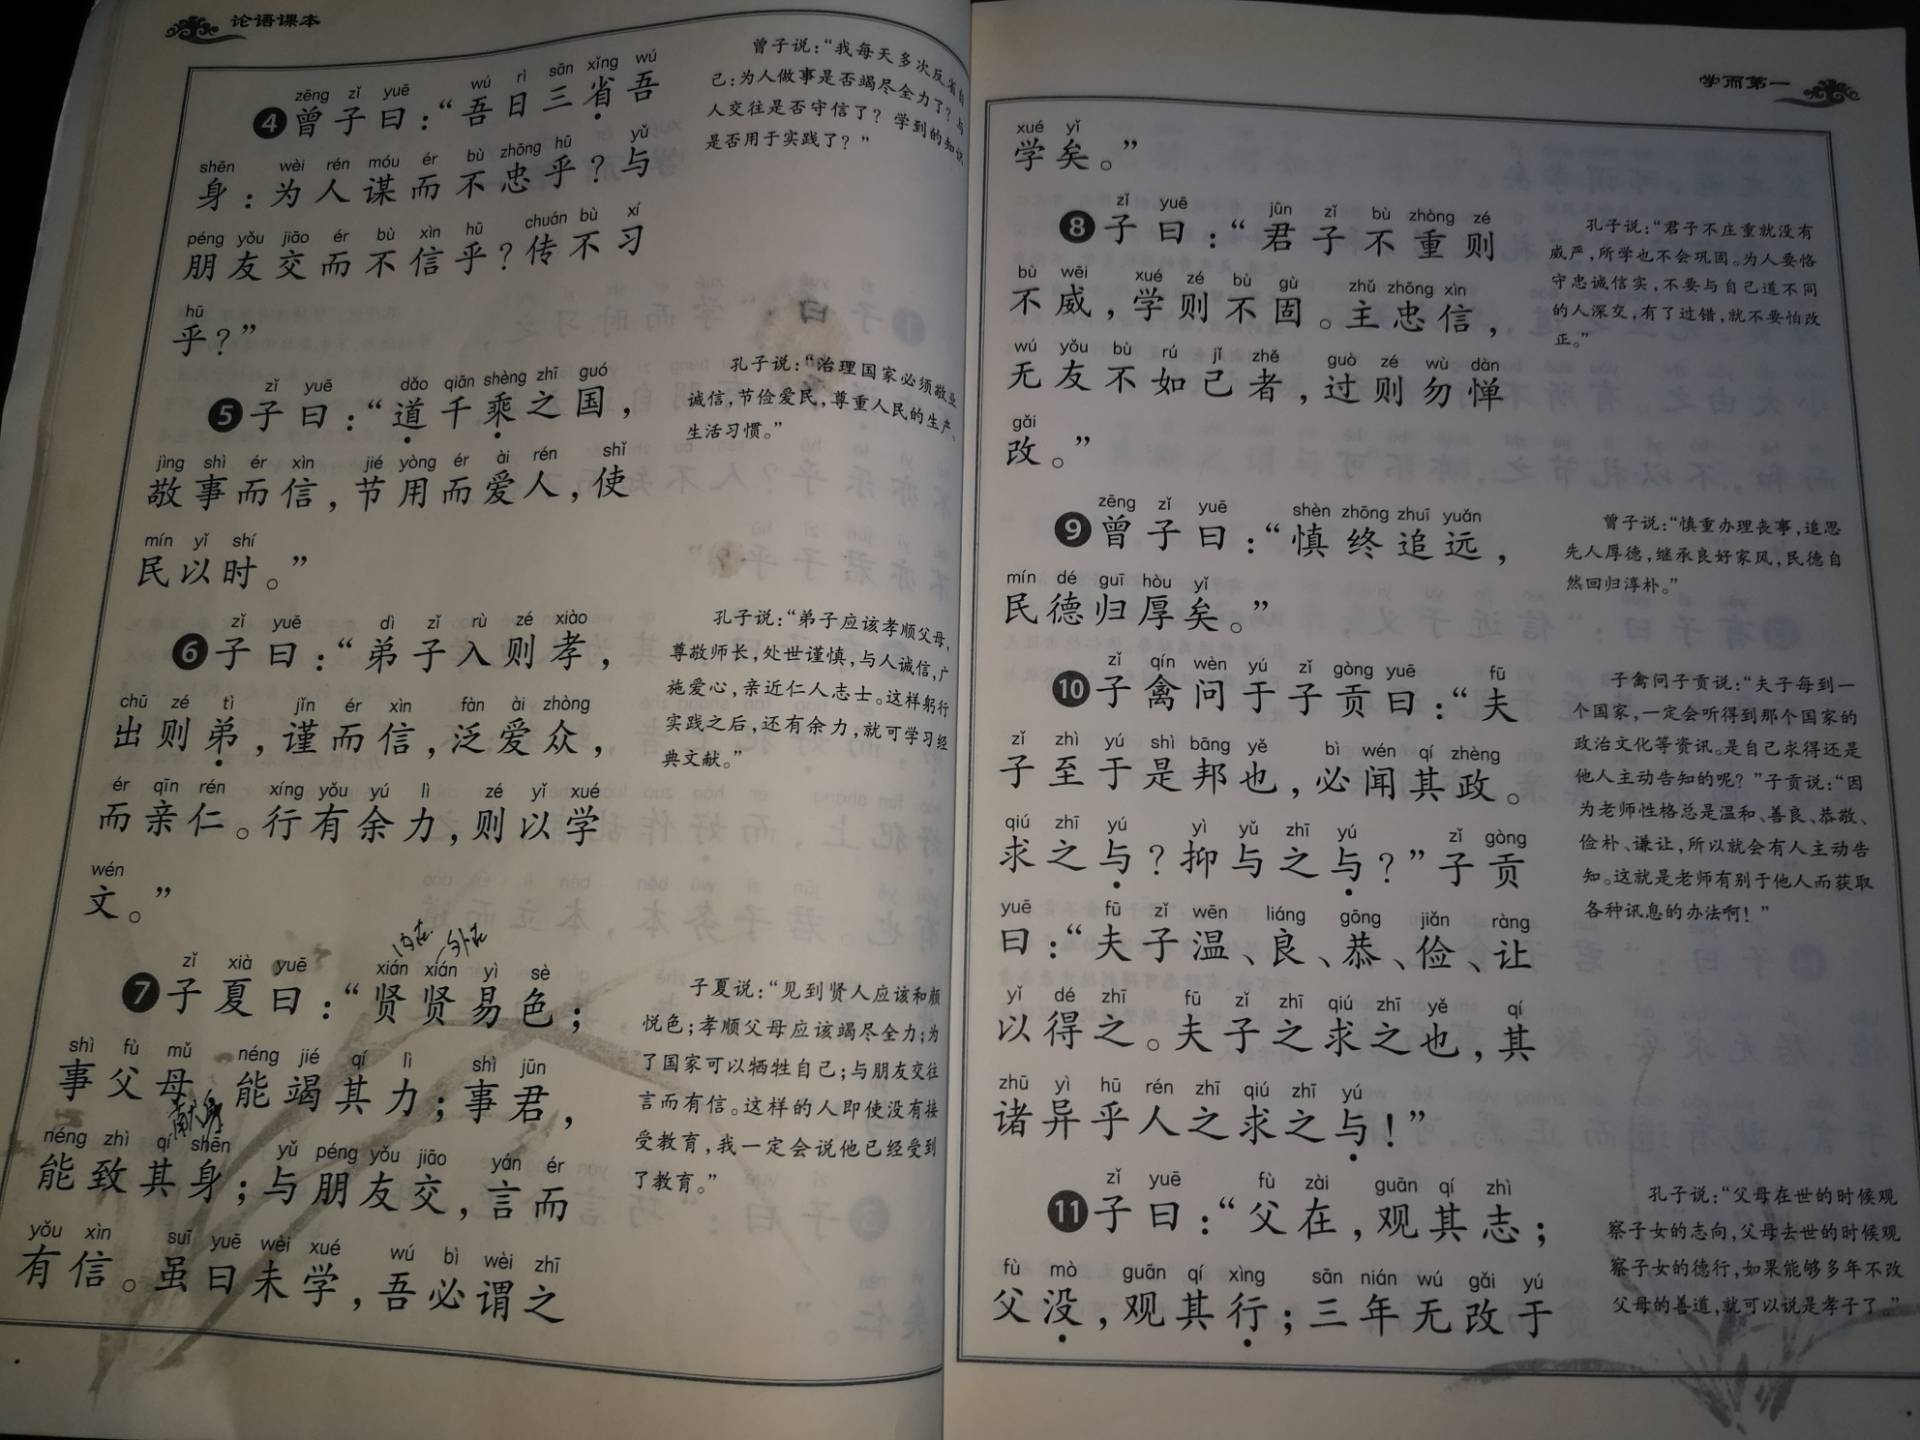 论语课本
zēng zǐ yuē wú rì sān xǐng wú
❹曾子曰：“吾日三省吾
shēn wèi rén móu ér bù zhōng hū yǔ
身：为人谋而不忠乎？与
péng yǒu jiāo ér bù xìn hū chuán bù xí
朋友交而不信乎？传不习
hū
乎？”
曾子说：“我每天多次反省自
己：为人做事是否竭尽全力了？与
人交往是否守信了？学到的知识
是否用于实践了？”
zǐ yuē dǎo qiān shèng zhī guó
❺子曰：“道千乘之国，
jìng shì ér xìn jié yòng ér ài rén shǐ
敬事而信，节用而爱人，使
mín yǐ shí
民以时。”
孔子说：“治理国家必须敬业
诚信，节俭爱民，尊重人民的生产、
生活习惯。”
zǐ yuē dì zǐ rù zé xiào
❻子曰：“弟子入则孝，
chū zé tì jǐn ér xìn fàn ài zhòng
出则弟，谨而信，泛爱众，
ér qīn rén xíng yǒu yú lì zé yǐ xué
而亲仁。行有余力，则以学
wén
文。”
孔子说：“弟子应该孝顺父母，
尊敬师长，处世谨慎，与人诚信，广
施爱心，亲近仁人志士。这样躬行
实践之后，还有余力，就可学习经
典文献。”
内在 外在
zǐ xià yuē xián xián yì sè
❼子夏曰：“贤贤易色；
shì fù mǔ néng jié qí lì shì jūn
事父母，能竭其力；事君，
néng zhì qí shēn yǔ péng yǒu jiāo yán ér
能致其身；与朋友交，言而
yǒu xìn suī yuē wèi xué wú bì wèi zhī
有信。虽曰未学，吾必谓之
子夏说：“见到贤人应该和颜
悦色；孝顺父母应该竭尽全力；为
了国家可以牺牲自己；与朋友交往
言而有信。这样的人即使没有接
受教育，我一定会说他已经受到
了教育。”
学而第一
xué yǐ
学矣。”
zǐ yuē jūn zǐ bù zhòng zé
❽子曰：“君子不重则
bù wēi xué zé bù gù zhǔ zhōng xìn
不威，学则不固。主忠信，
wú yǒu bù rú jǐ zhě guò zé wù dàn
无友不如己者，过则勿惮
gǎi
改。”
孔子说：“君子不庄重就没有
威严，所学也不会巩固。为人要恪
守忠诚信实，不要与自己道不同
的人深交，有了过错，就不要怕改
正。”
zēng zǐ yuē shèn zhōng zhuī yuǎn
❾曾子曰：“慎终追远，
mín dé guī hòu yǐ
民德归厚矣。”
曾子说：“慎重办理丧事，追思
先人厚德，继承良好家风，民德自
然回归淳朴。”
zǐ qín wèn yú zǐ gòng yuē fū
❿子禽问于子贡曰：“夫
zǐ zhì yú shì bāng yě bì wén qí zhèng
子至于是邦也，必闻其政。
qiú zhī yú yì yǔ zhī yú zǐ gòng
求之与？抑与之与？”子贡
yuē fū zǐ wēn liáng gōng jiǎn ràng
曰：“夫子温、良、恭、俭、让
yǐ dé zhī fū zǐ zhī qiú zhī yě qí
以得之。夫子之求之也，其
zhū yì hū rén zhī qiú zhī yú
诸异乎人之求之与！”
子禽问子贡说：“夫子每到一
个国家，一定会听得到那个国家的
政治文化等资讯。是自己求得还是
他人主动告知的呢？”子贡说：“因
为老师性格总是温和、善良、恭敬、
俭朴、谦让，所以就会有人主动告
知。这就是老师有别于他人而获取
各种讯息的办法啊！”
zǐ yuē fù zài guān qí zhì
⓫子曰：“父在，观其志；
fù mò guān qí xìng sān nián wú gǎi yú
父没，观其行；三年无改于
孔子说：“父母在世的时候观
察子女的志向，父母去世的时候观
察子女的德行，如果能够多年不改
父母的善道，就可以说是孝子了。”